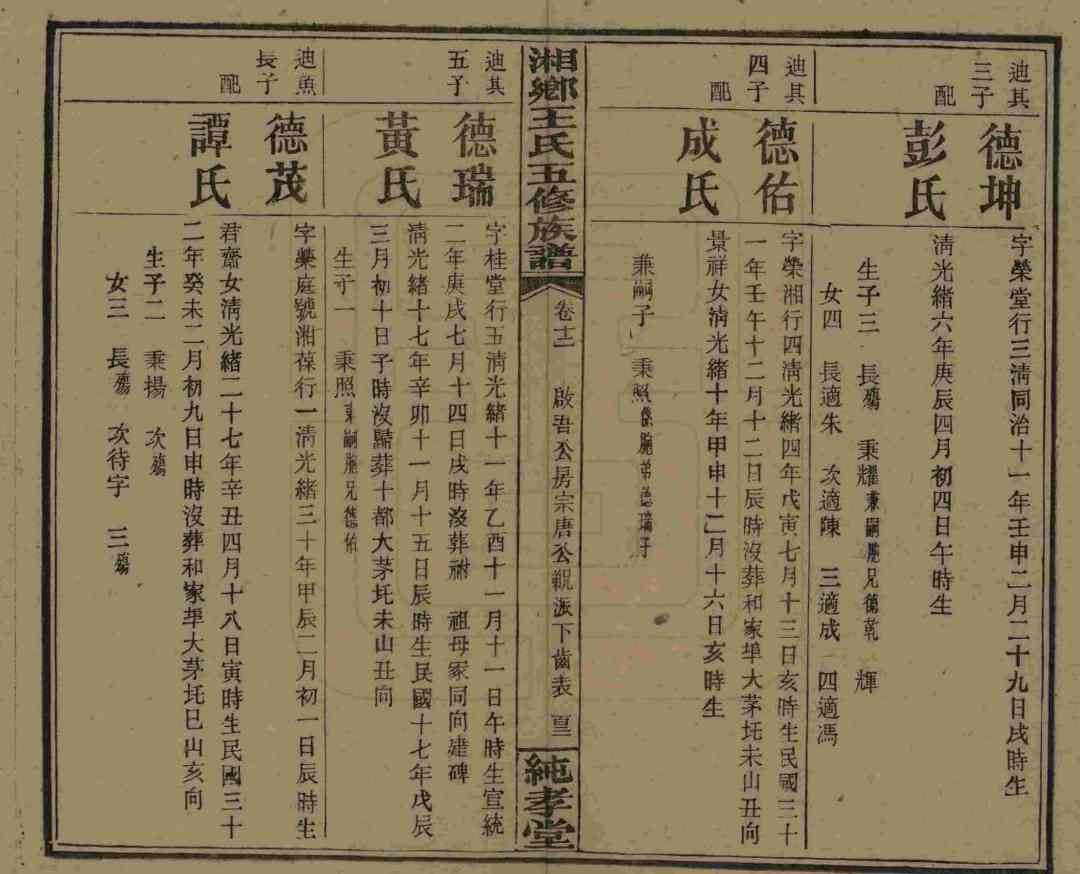 迪其
三子
配
德坤
彭氏
字榮堂行三淸同治十一年壬申二月二十九日戌時生
淸光緖六年庚辰四月初四日午時生
生子三 長殤 秉耀兼嗣胞兄德乾 輝
女四 長適朱 次適陳 三適成 四適馮
迪其
四子
配
德佑
成氏
字榮湘行四淸光緖四年戊寅七月十三日亥時生民國三十
一年壬午十二月十二日辰時沒葬和家埠大茅坵未山丑向
景祥女淸光緖十年甲申十二月十六日亥時生
兼嗣子一 秉照係胞弟德瑞子
湘鄉王氏五修族譜
卷十二
啟吾公房宗唐公觀派下齒表
純孝堂
迪其
五子
德瑞
黃氏
字桂堂行五淸光緖十一年乙酉十一月十一日午時生宣統
二年庚戌七月十四日戌時沒葬祔 祖母冢同向建碑
淸光緖十七年辛卯十一月十五日辰時生民國十七年戊辰
三月初十日子時沒歸葬十都大茅坵未山丑向
生子一 秉照兼嗣胞兄德佑
迪魚
長子
配
德茂
譚氏
字榮庭號湘葆行一淸光緖三十年甲辰二月初一日辰時生
君齋女淸光緖二十七年辛丑四月十八日寅時生民國三十
二年癸未二月初九日申時沒葬和家埠大茅坵巳山亥向
生子二 秉揚 次殤
女三 長殤 次待字 三殤